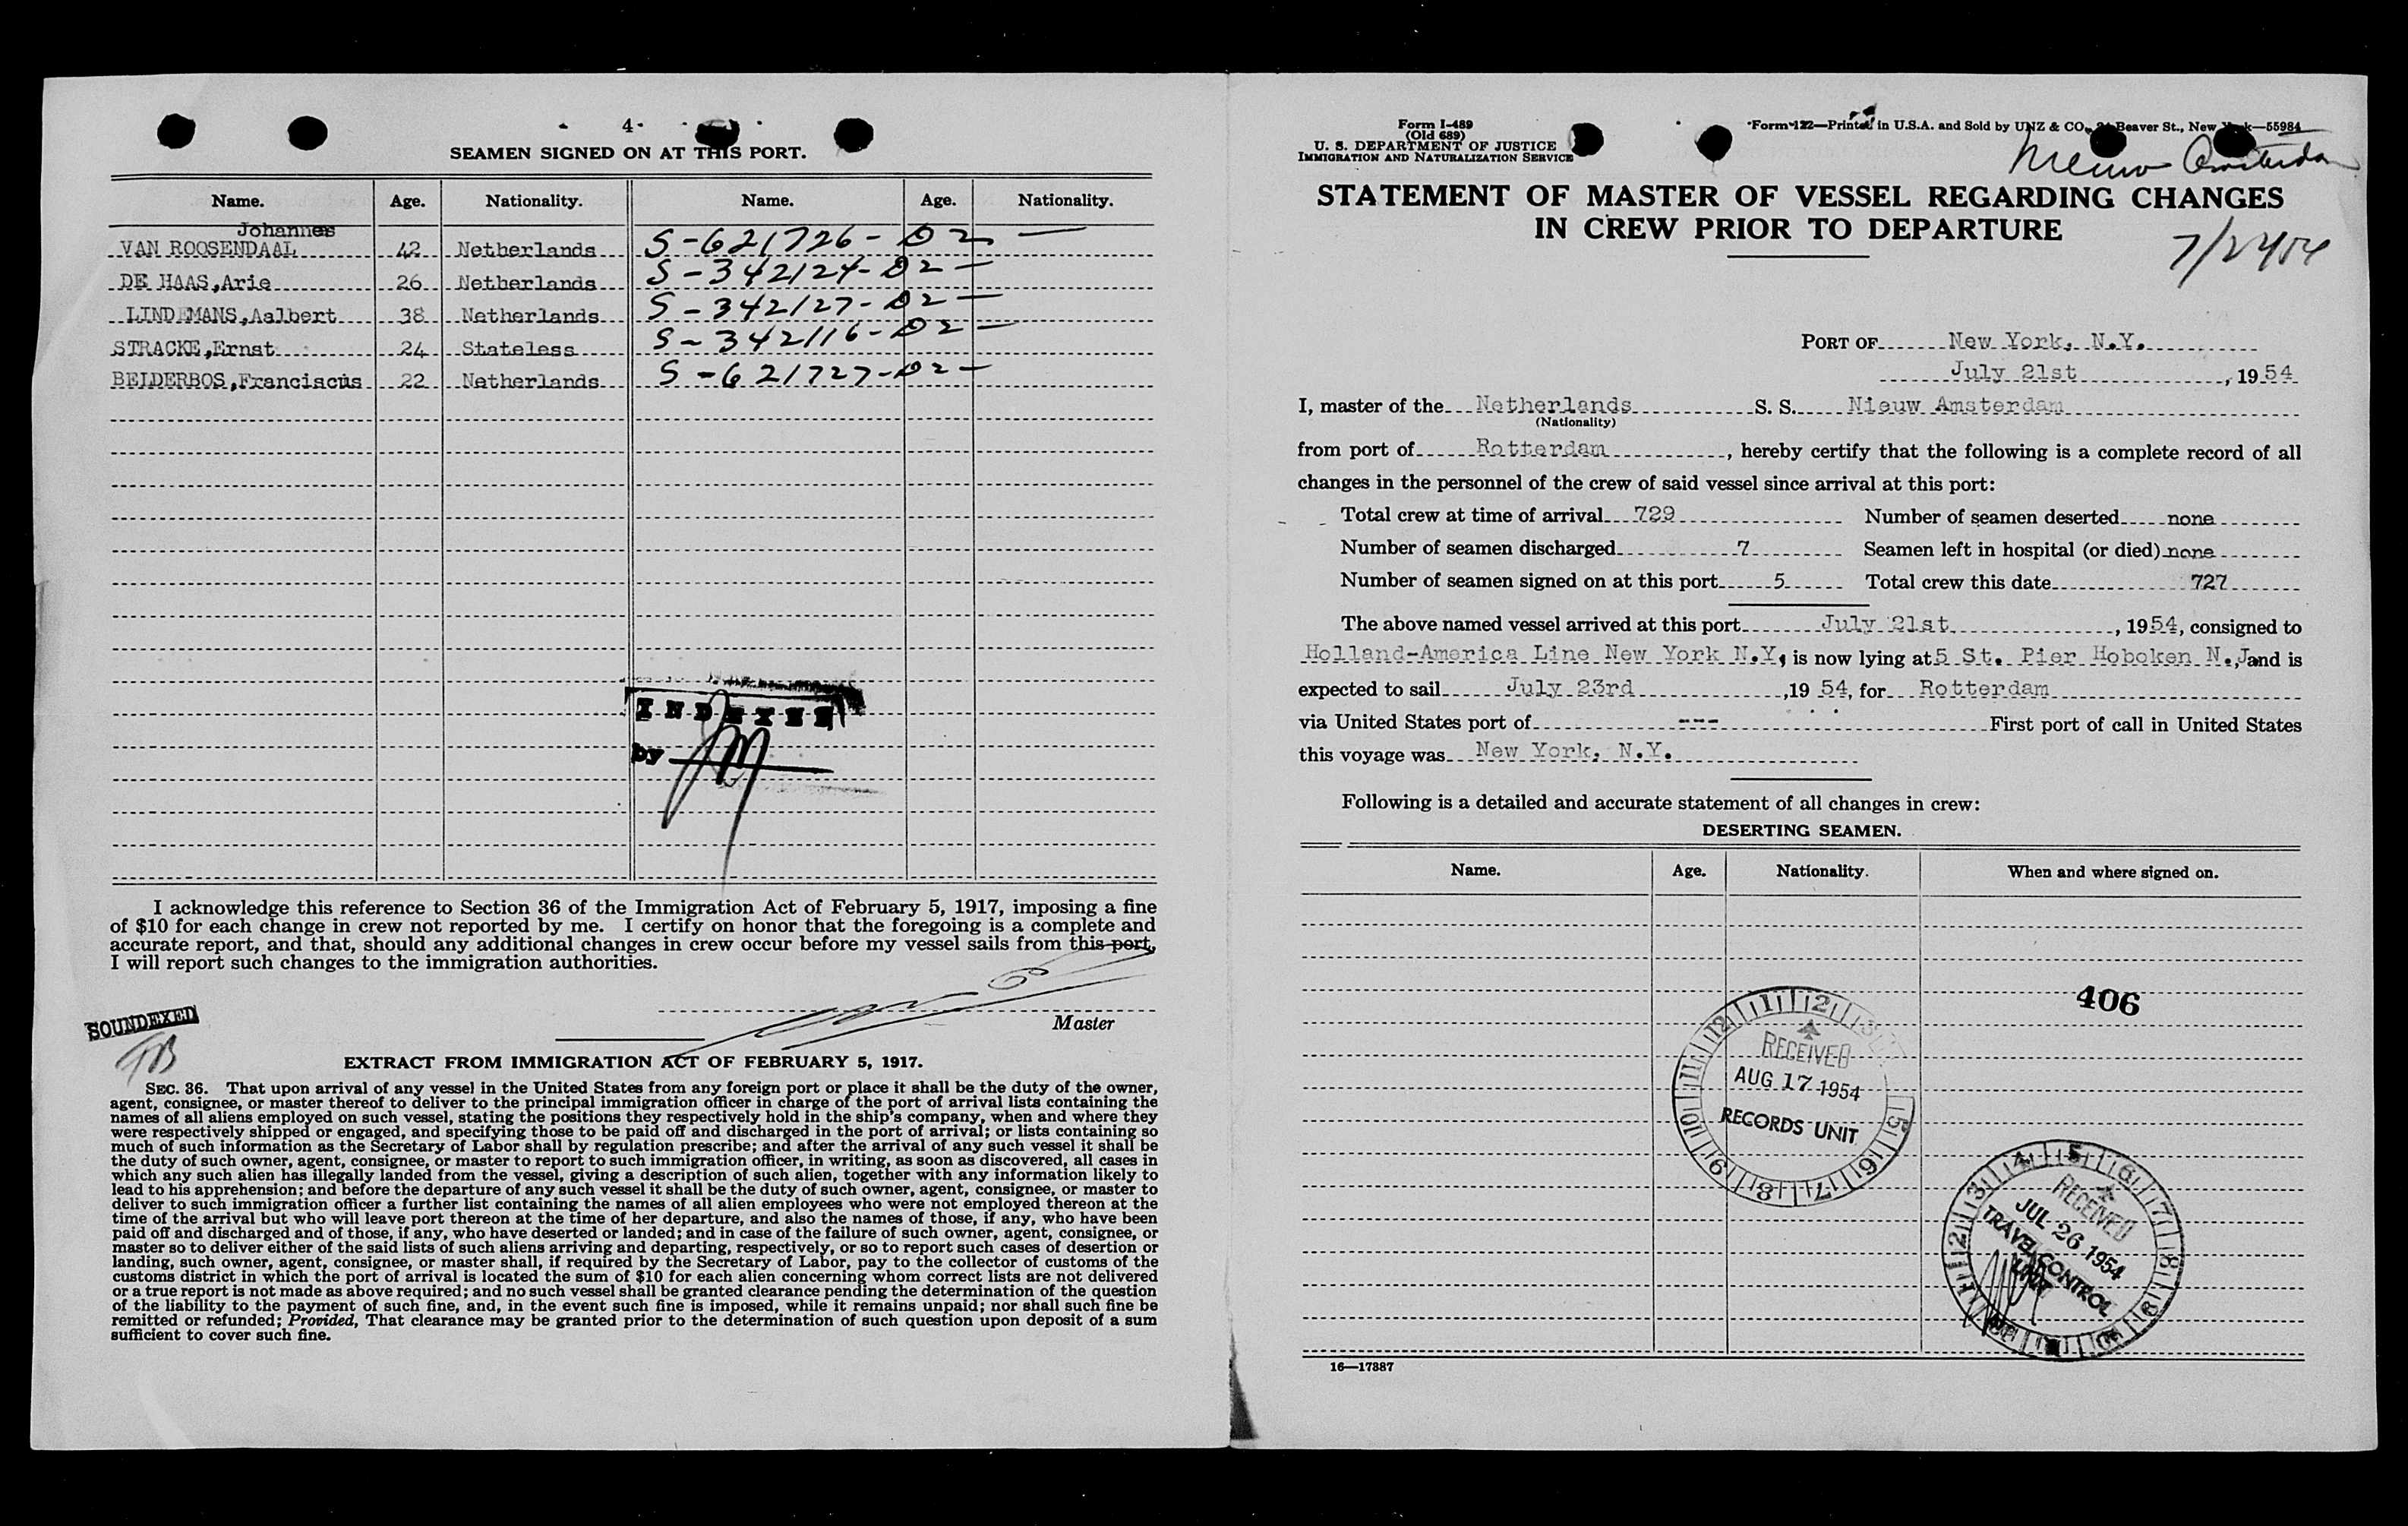 4
SEAMEN SIGNED ON AT THIS PORT.
Name. Age. Nationality. Name. Age. Nationality.
Johannes
VAN ROOSENDAAL 42 Netherlands S-621726-D2 —
DE HAAS,Arie 26 Netherlands S-342124-D2 —
LINDEMANS,Aalbert 38 Netherlands S-342127-D2 —
STRACKE,Ernst 24 Stateless S-342116-D2 —
BEIDERBOS,Franciscus 22 Netherlands S-621727-D2 —
INDEXED
by
I acknowledge this reference to Section 36 of the Immigration Act of February 5, 1917, imposing a fine
of $10 for each change in crew not reported by me. I certify on honor that the foregoing is a complete and
accurate report, and that, should any additional changes in crew occur before my vessel sails from this port,
I will report such changes to the immigration authorities.
Master
SOUNDEXED
TB
EXTRACT FROM IMMIGRATION ACT OF FEBRUARY 5, 1917.
SEC. 36. That upon arrival of any vessel in the United States from any foreign port or place it shall be the duty of the owner,
agent, consignee, or master thereof to deliver to the principal immigration officer in charge of the port of arrival lists containing the
names of all aliens employed on such vessel, stating the positions they respectively hold in the ship's company, when and where they
were respectively shipped or engaged, and specifying those to be paid off and discharged in the port of arrival; or lists containing so
much of such information as the Secretary of Labor shall by regulation prescribe; and after the arrival of any such vessel it shall be
the duty of such owner, agent, consignee, or master to report to such immigration officer, in writing, as soon as discovered, all cases in
which any such alien has illegally landed from the vessel, giving a description of such alien, together with any information likely to
lead to his apprehension; and before the departure of any such vessel it shall be the duty of such owner, agent, consignee, or master to
deliver to such immigration officer a further list containing the names of all alien employees who were not employed thereon at the
time of the arrival but who will leave port thereon at the time of her departure, and also the names of those, if any, who have been
paid off and discharged and of those, if any, who have deserted or landed; and in case of the failure of such owner, agent, consignee, or
master so to deliver either of the said lists of such aliens arriving and departing, respectively, or so to report such cases of desertion or
landing, such owner, agent, consignee, or master shall, if required by the Secretary of Labor, pay to the collector of customs of the
customs district in which the port of arrival is located the sum of $10 for each alien concerning whom correct lists are not delivered
or a true report is not made as above required; and no such vessel shall be granted clearance pending the determination of the question
of the liability to the payment of such fine, and, in the event such fine is imposed, while it remains unpaid; nor shall such fine be
remitted or refunded; Provided, That clearance may be granted prior to the determination of such question upon deposit of a sum
sufficient to cover such fine.
Form I-489
(Old 689)
U. S. DEPARTMENT OF JUSTICE
IMMIGRATION AND NATURALIZATION SERVICE
Form 122—Printed in U.S.A. and Sold by UNZ & CO., Beaver St., New York—55984
Nieuw Amsterdam
STATEMENT OF MASTER OF VESSEL REGARDING CHANGES
IN CREW PRIOR TO DEPARTURE
PORT OF New York, N.Y.
July 21st, 1954
I, master of the Netherlands S. S. Nieuw Amsterdam
(Nationality)
from port of Rotterdam, hereby certify that the following is a complete record of all
changes in the personnel of the crew of said vessel since arrival at this port:
Total crew at time of arrival 729 Number of seamen deserted none
Number of seamen discharged 7 Seamen left in hospital (or died) none
Number of seamen signed on at this port 5 Total crew this date 727
The above named vessel arrived at this port July 21st, 1954, consigned to
Holland-America Line New York N.Y, is now lying at 5 St. Pier Hoboken N.J. and is
expected to sail July 23rd, 1954, for Rotterdam
via United States port of --- First port of call in United States
this voyage was New York, N.Y.
Following is a detailed and accurate statement of all changes in crew:
DESERTING SEAMEN.
Name. Age. Nationality. When and where signed on.
406
RECEIVED
AUG 17 1954
RECORDS UNIT
RECEIVED
JUL 26 1954
TRAVEL CONTROL
UNIT
16—17887